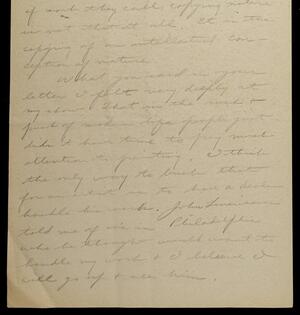 of work they call copying nature
is not that at all. It is the
copying of an intellectual con-
ception of nature.
What you said in your
letter I felt very deeply at
my show. That in the rush &
push of modern life people just
didn't have time to pay much
attention to painting. I think
the only way to break that
for an artist is to have a dealer
handle his work. John
told me of one in Philadelphia
who he thought would want to
handle my work & I believe I
will go up & see him.